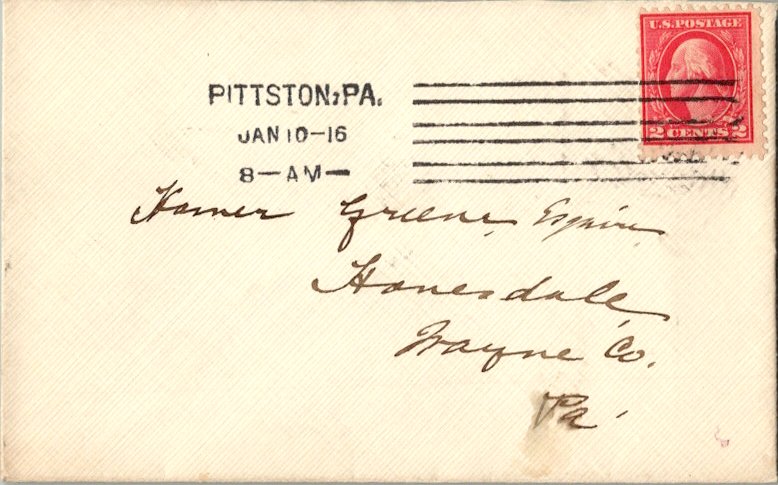 U.S. POSTAGE
2 CENTS 2
PITTSTON, PA.
JAN 10-16
8-AM-
Homer Greene, Esquire,
Honesdale,
Wayne Co.
Pa.